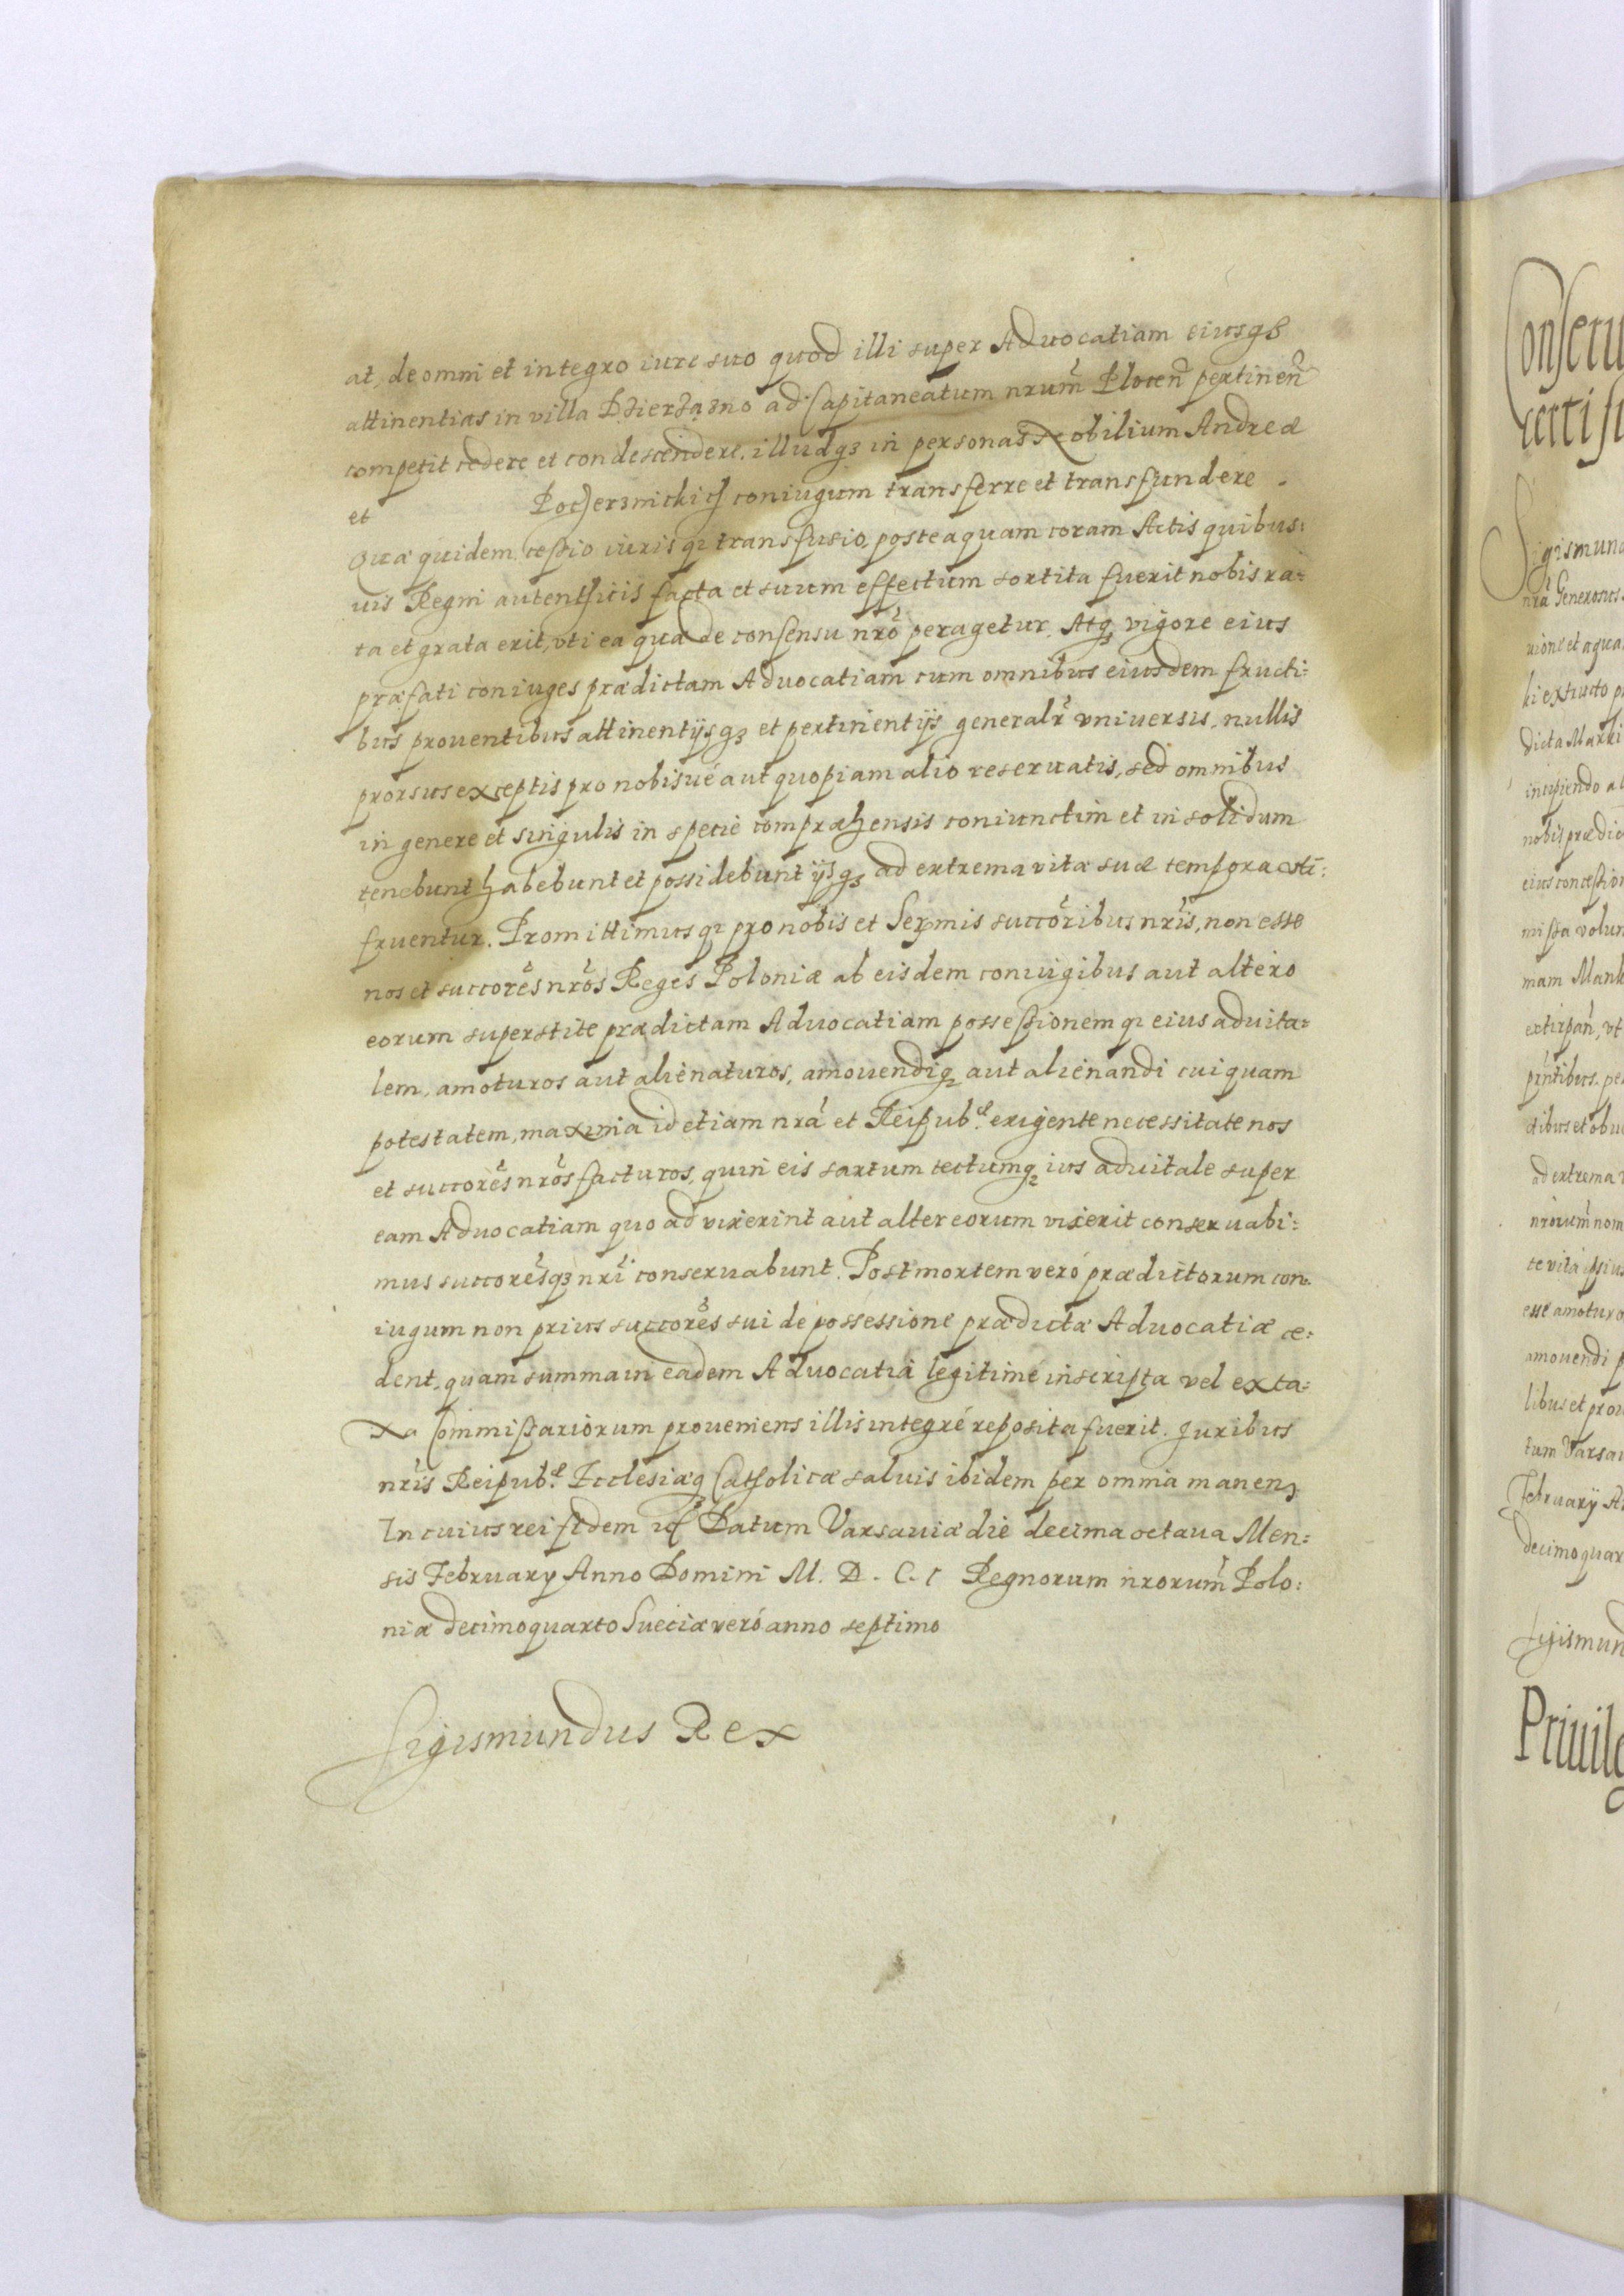 at, de omni et integro iure suo quod illi super Aduocatiam eiusq3
attinentias in villa Dzierzązno ad Capitaneatum nrum Plocen pertinen
competit cedere et condescendere, illudq3 in personas Nobilium Andreæ
et Pochersnickich coniugum transferre et transfundere.
Quæ quidem cessio iuris q3 transfusio, posteaquam coram Actis quibus:
uis Regni autenthicis facta et suum effectum sortita fuerit nobis ra:
ta et grata erit, vti ea quæ de consensu nro peragetur. Atq3 vigore eius
præfati coniuges prædictam Aduocatiam cum omnibus eiusdem fructi:
bus prouentibus attinentijsq3 et pertinentijs generalr vniuersis, nullis
prorsus exceptis pro nobisué aut quopiam alio reseruatis, sed omnibus
in genere et singulis in specie compræhensis coniunctim et in solidum
tenebunt habebunt et possidebunt ijsq3 ad extrema vitæ suæ tempora vti:
fruentur. Promittimus q3 pro nobis et Sermis succoribus nris, non esse
nos et succores nros Reges Poloniæ ab eisdem coniugibus aut altero
eorum superstite prædictam Aduocatiam possessionem q3 eius aduita:
lem, amoturos aut alienaturos, amouendiq3 aut alienandi cuiquam
potestatem, maxima id etiam nra et Reipub. exigente necessitate nos
et succores nros facturos, quin eis sartum tectumq3 ius aduitale super
eam Aduocatiam quo ad vixerint aut alter eorum vixerit conseruabi:
mus succoresq3 nri conseruabunt. Post mortem veró prædictorum con:
iugum non prius succores sui de possessione prædictæ Aduocatiæ ce:
dent, quam summa in eadem Aduocatia legitimé inscripta vel ex ta:
xa Commissariorum proueniens illis integré reposita fuerit. Juribus
nris Reipub. Ecclesiæq3 Catholicæ saluis ibidem per omnia manen3
In cuius rei fidem Datum Varsauiæ die decima octaua Men:
sis February Anno Domini M. D. C. I Regnorum nrorum Polo:
niæ decimoquarto Sueciæ veró anno septimo
Sigismundus Rex